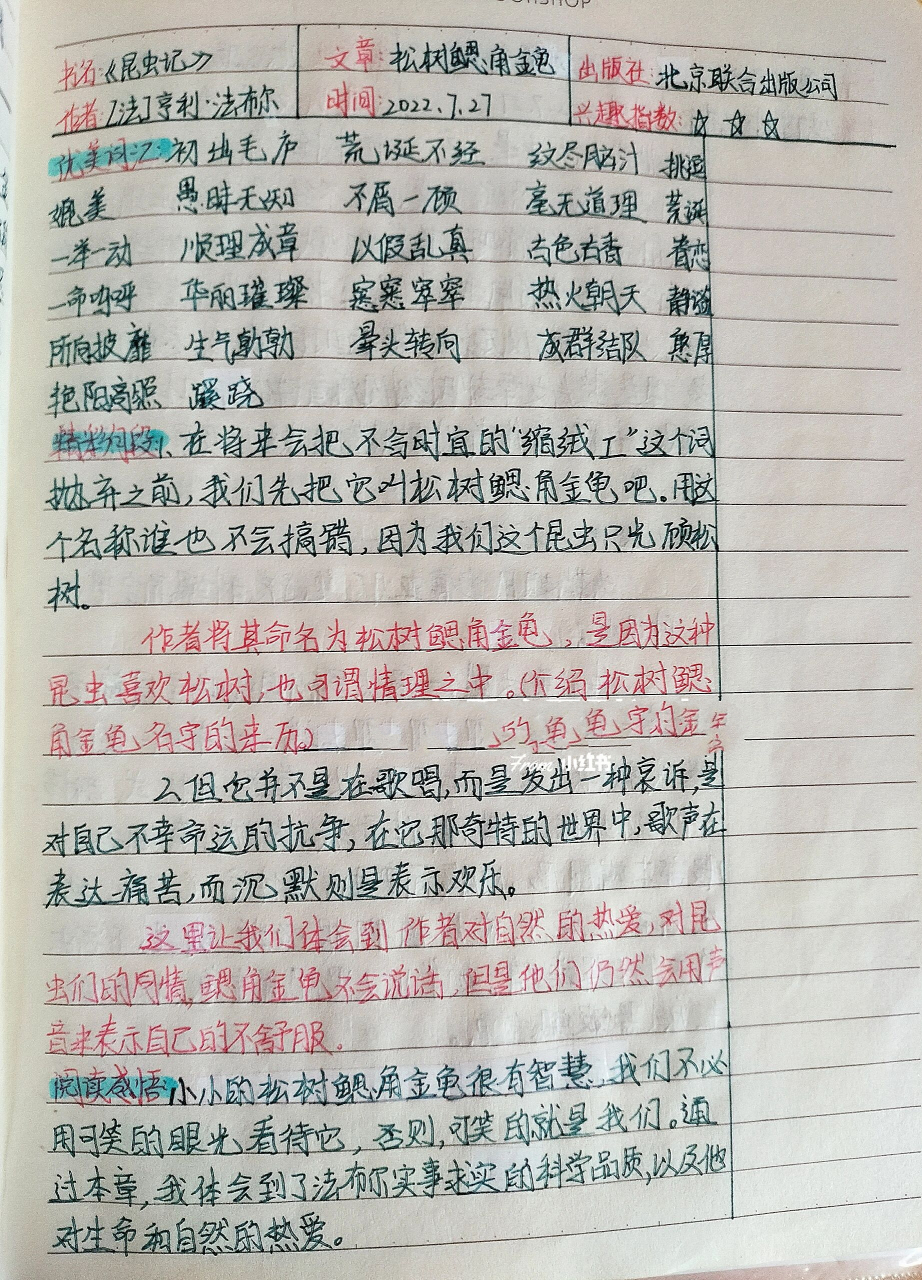 书名:《昆虫记》 文章:松树鳃角金龟 出版社:北京联合出版公司
作者:[法]亨利·法布尔 时间:2022.7.27 兴趣指数:☆ ☆ ☆
优美词汇:初出毛庐 荒诞不经 绞尽脑汁 挑逗
媲美 愚昧无知 不屑一顾 毫无道理 荒诞
一举一动 顺理成章 以假乱真 古色古香 眷恋
一命呜呼 华丽璀璨 窸窸窣窣 热火朝天 静谧
所向披靡 生气勃勃 晕头转向 成群结队 憨厚
艳阳高照 蹊跷
精彩片段:1、在将来会把不合时宜的“缩绒工”这个词
抛弃之前,我们先把它叫松树鳃角金龟吧。用这
个名称谁也不会搞错,因为我们这个昆虫只光顾松
树。
作者将其命名为松树鳃角金龟,是因为这种
昆虫喜欢松树,也可谓情理之中。(介绍松树鳃
角金龟名字的来历)
From 小红书
2.但它并不是在歌唱,而是发出一种哀诉,是
对自己不幸命运的抗争,在它那奇特的世界中,歌声在
表达痛苦,而沉默则是表示欢乐。
这里让我们体会到作者对自然的热爱,对昆
虫们的同情,鳃角金龟不会说话,但是他们仍然会用声
音来表示自己的不舒服。
阅读感悟:小小的松树鳃角金龟很有智慧,我们不必
用可笑的眼光看待它,否则,可笑的就是我们。通
过本章,我体会到了法布尔实事求实的科学品质,以及他
对生命和自然的热爱。